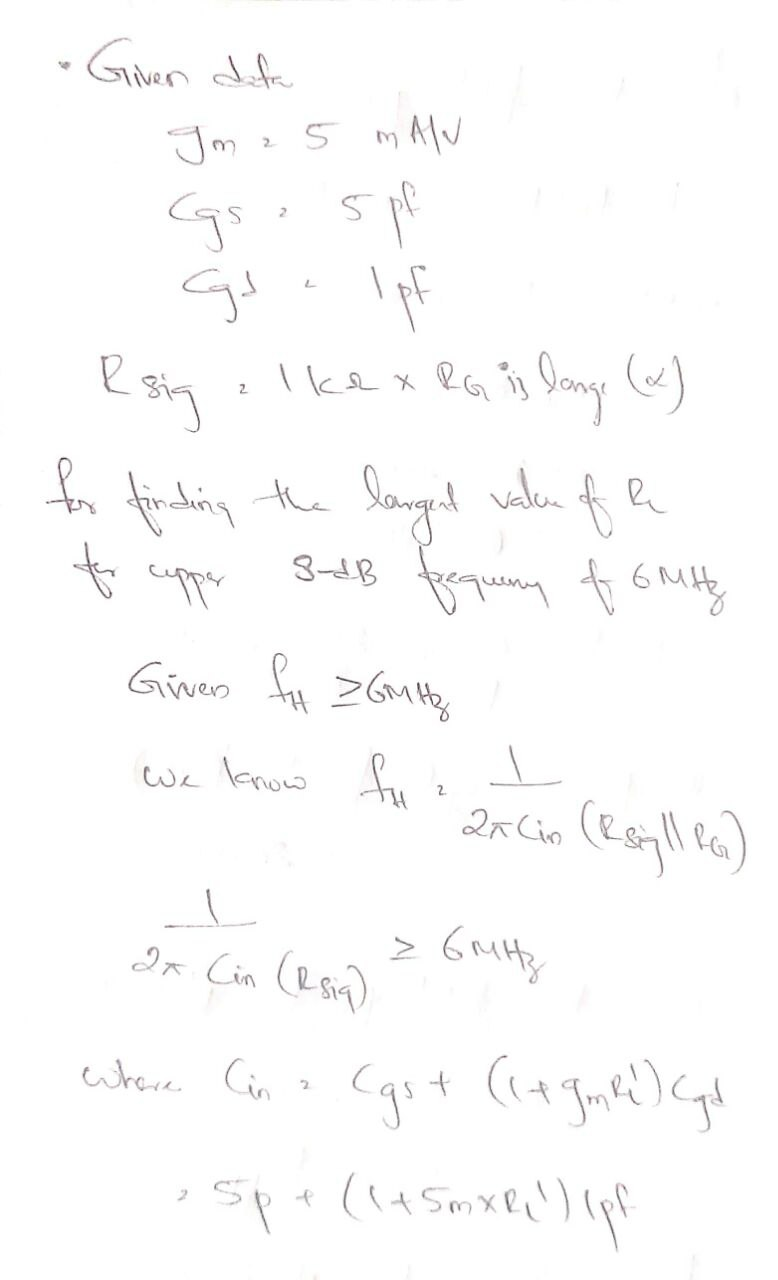 • Given data
gm = 5 mA/V
Cgs = 5 pf
Cgd = 1 pf
Rsig = 1 kΩ x RG is large (∝)
for finding the largest value of RL
for upper 3-dB frequency of 6 MHz
Given fH ≥ 6MHz
we know fH = 1 / 2π Cin (Rsig || RG)
1 / 2π Cin (Rsig) ≥ 6 MHz
where Cin = Cgs + (1 + gmRL') Cgd
= 5p + (1 + 5m x RL') 1pf